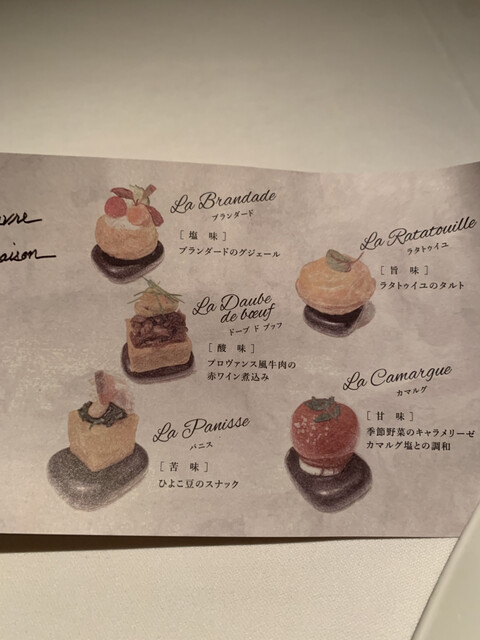 La Brandade
ブランダード
[塩 味]
ブランダードのグジェール
La Ratatouille
ラタトゥイユ
[旨 味]
ラタトゥイユのタルト
La Daube
de bœuf
ドーブ ド ブッフ
[酸 味]
プロヴァンス風牛肉の
赤ワイン煮込み
La Camargue
カマルグ
[甘 味]
季節野菜のキャラメリーゼ
カマルグ塩との調和
La Panisse
パニス
[苦 味]
ひよこ豆のスナック